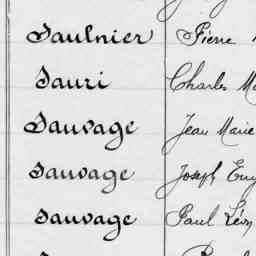 Saulnier Pierre
Sauri Charles
Sauvage Jean Marie
Sauvage Joseph
Sauvage Paul Léon